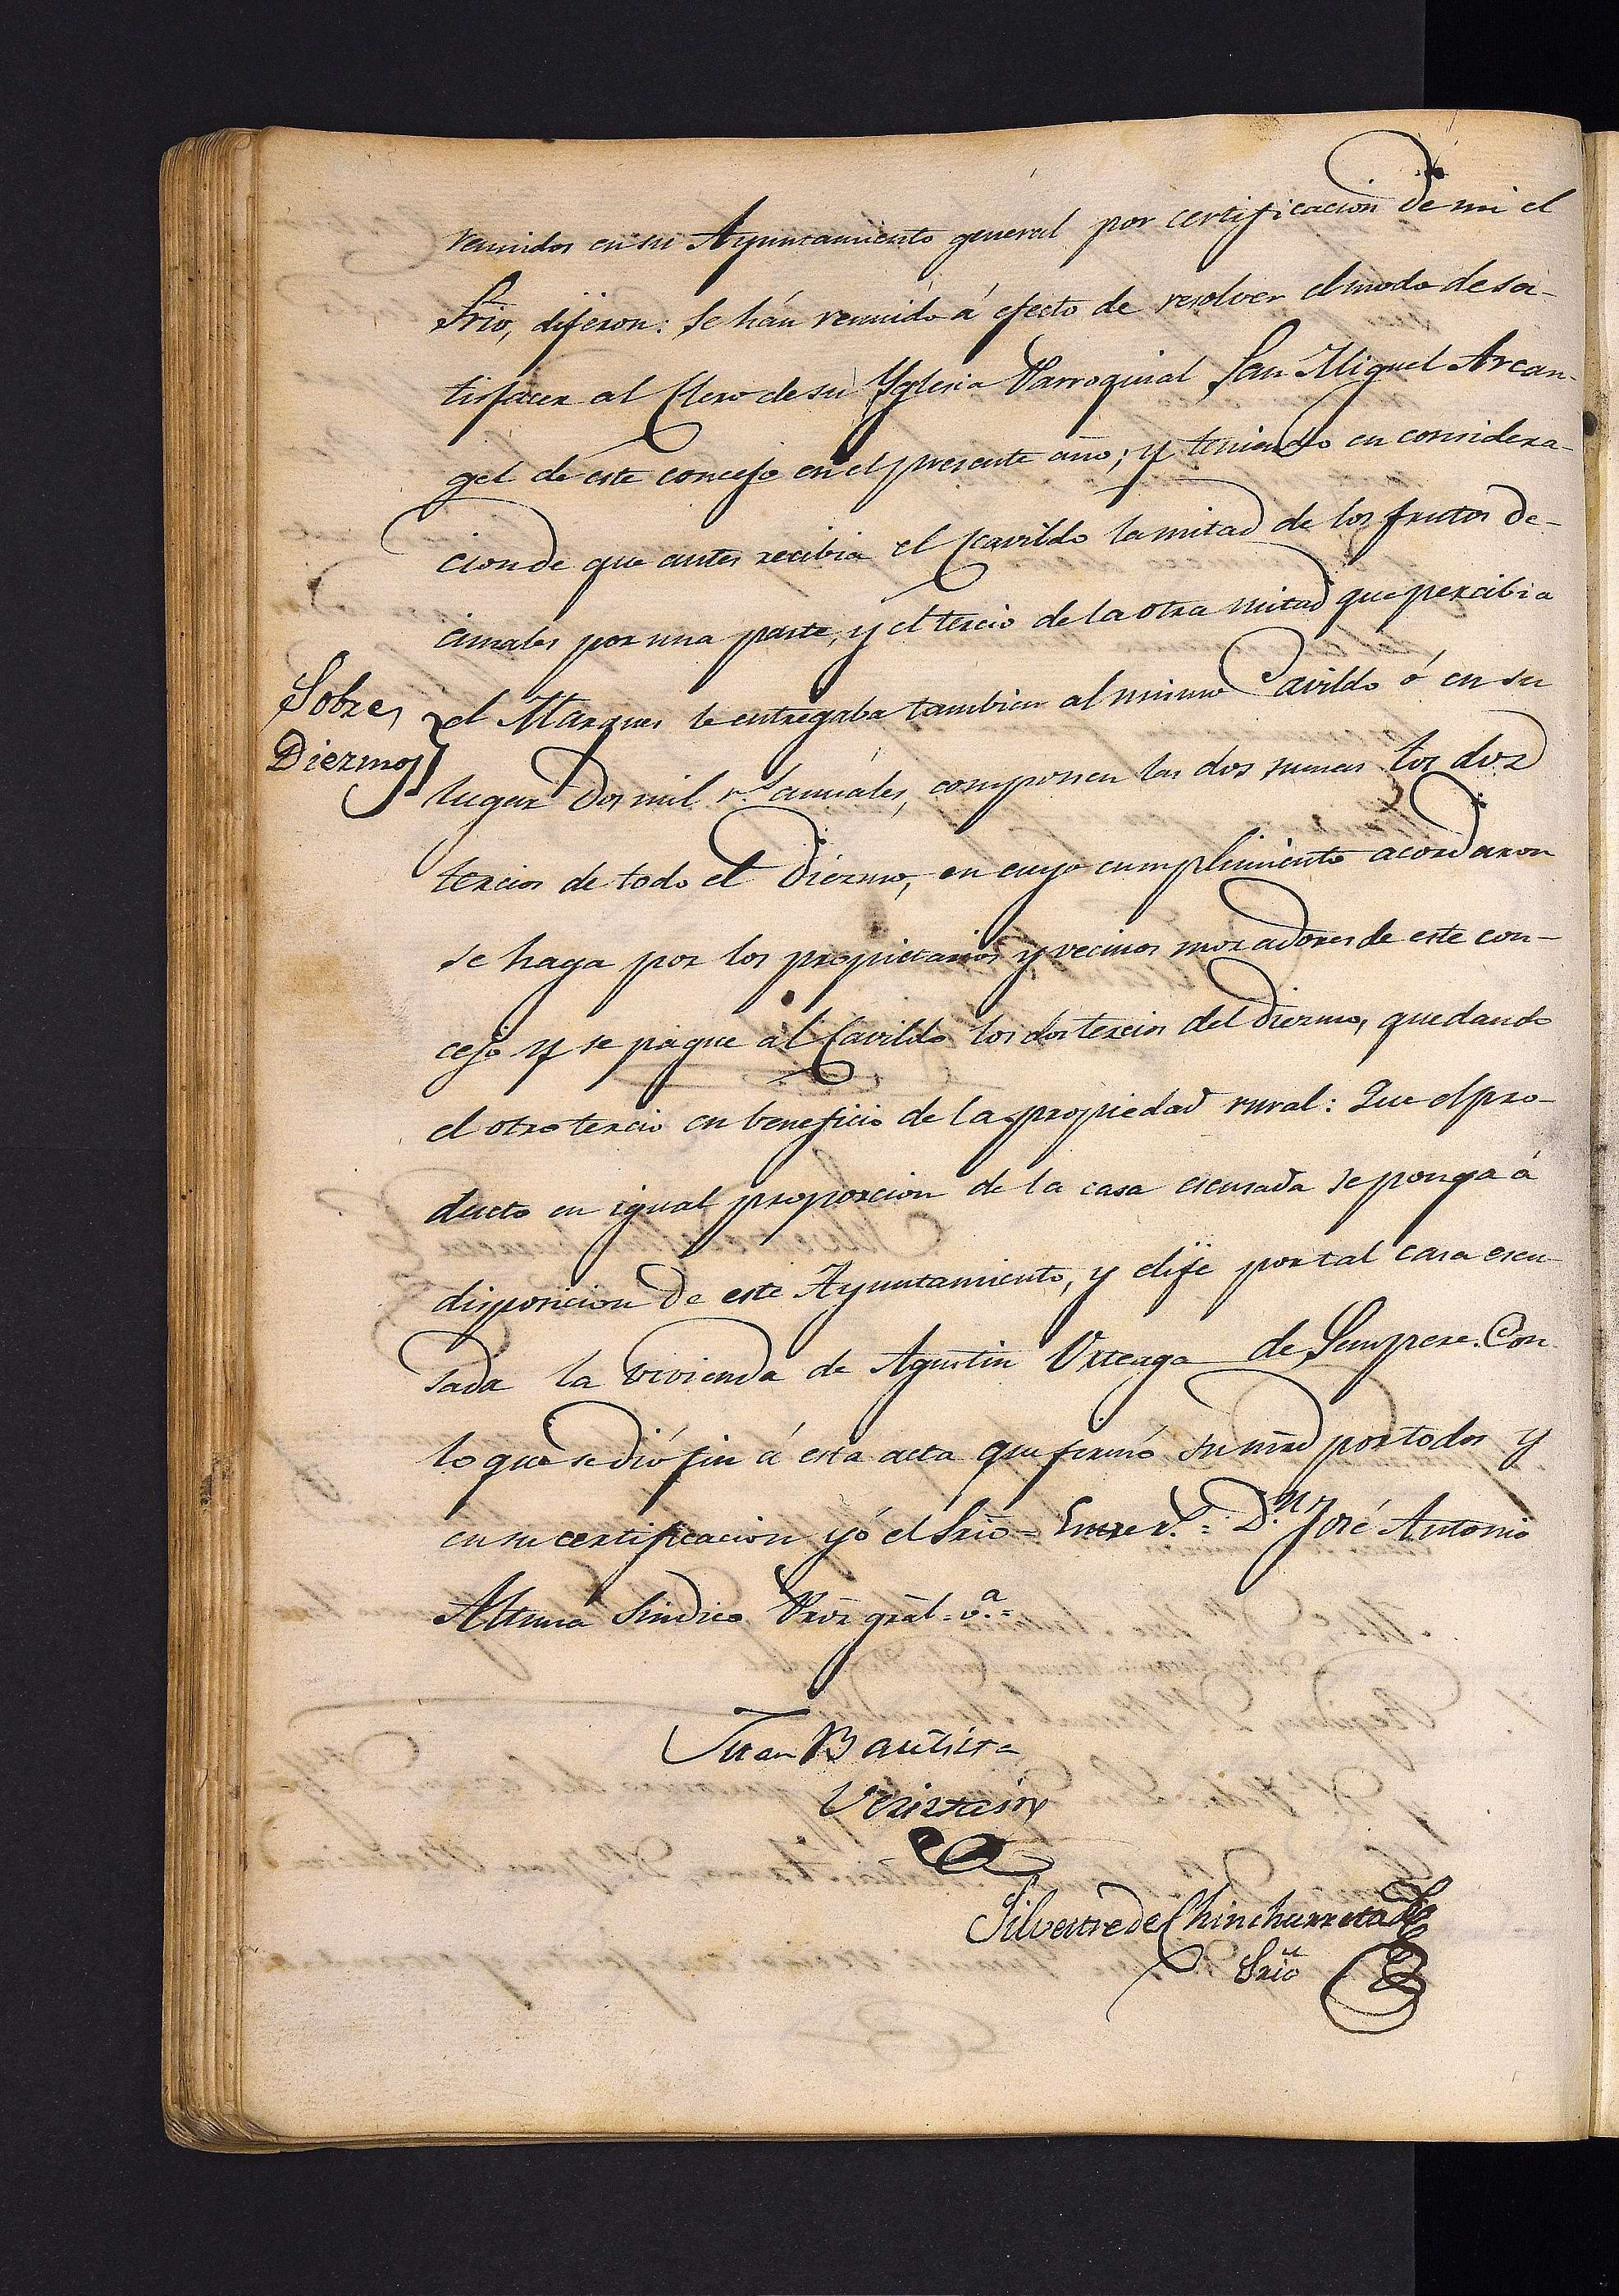 reunidos en su Ayuntamiento general por certificacion de mi el
Srio, dijeron: Se hán reunido á efecto de resolver el modo de sa-
tisfacer al Clero de su Yglesia Parroquial San Miguel Arcan-
gel de este concejo en el presente año; y teniendo en considera-
cion de que antes recibia el Cavildo la mitad de los frutos de-
cimales por una parte, y el tercio de la otra mitad que percibia
Sobre
Diezmos
el Marques le entregaba tambien al mismo Cavildo ó en su
lugar dos mil r.s anuales, componen las dos sumas los dos
tercios de todo el Diezmo, en cuyo cumplimiento acordaron
se haga por los propietarios y vecinos moradores de este con-
cejo y se pague al Cavildo los dos tercios del Diezmo, quedando
el otro tercio en beneficio de la propiedad rural: Que el pro-
ducto en igual proporcion de la casa escusada se ponga á
disposicion de este Ayuntamiento, y elije por tal casa escu-
sada la vivienda de Agustin Urteaga de Sempere. Con
lo que se dió fin á esta acta que firmó su mrd por todos y
en su certificacion yó el Srio = Entre r.s = D.n José Antonio
Altuna Sindico Pror gral = v.a =
Juan Bautista
Silvestre de Chinchurreta
Srio